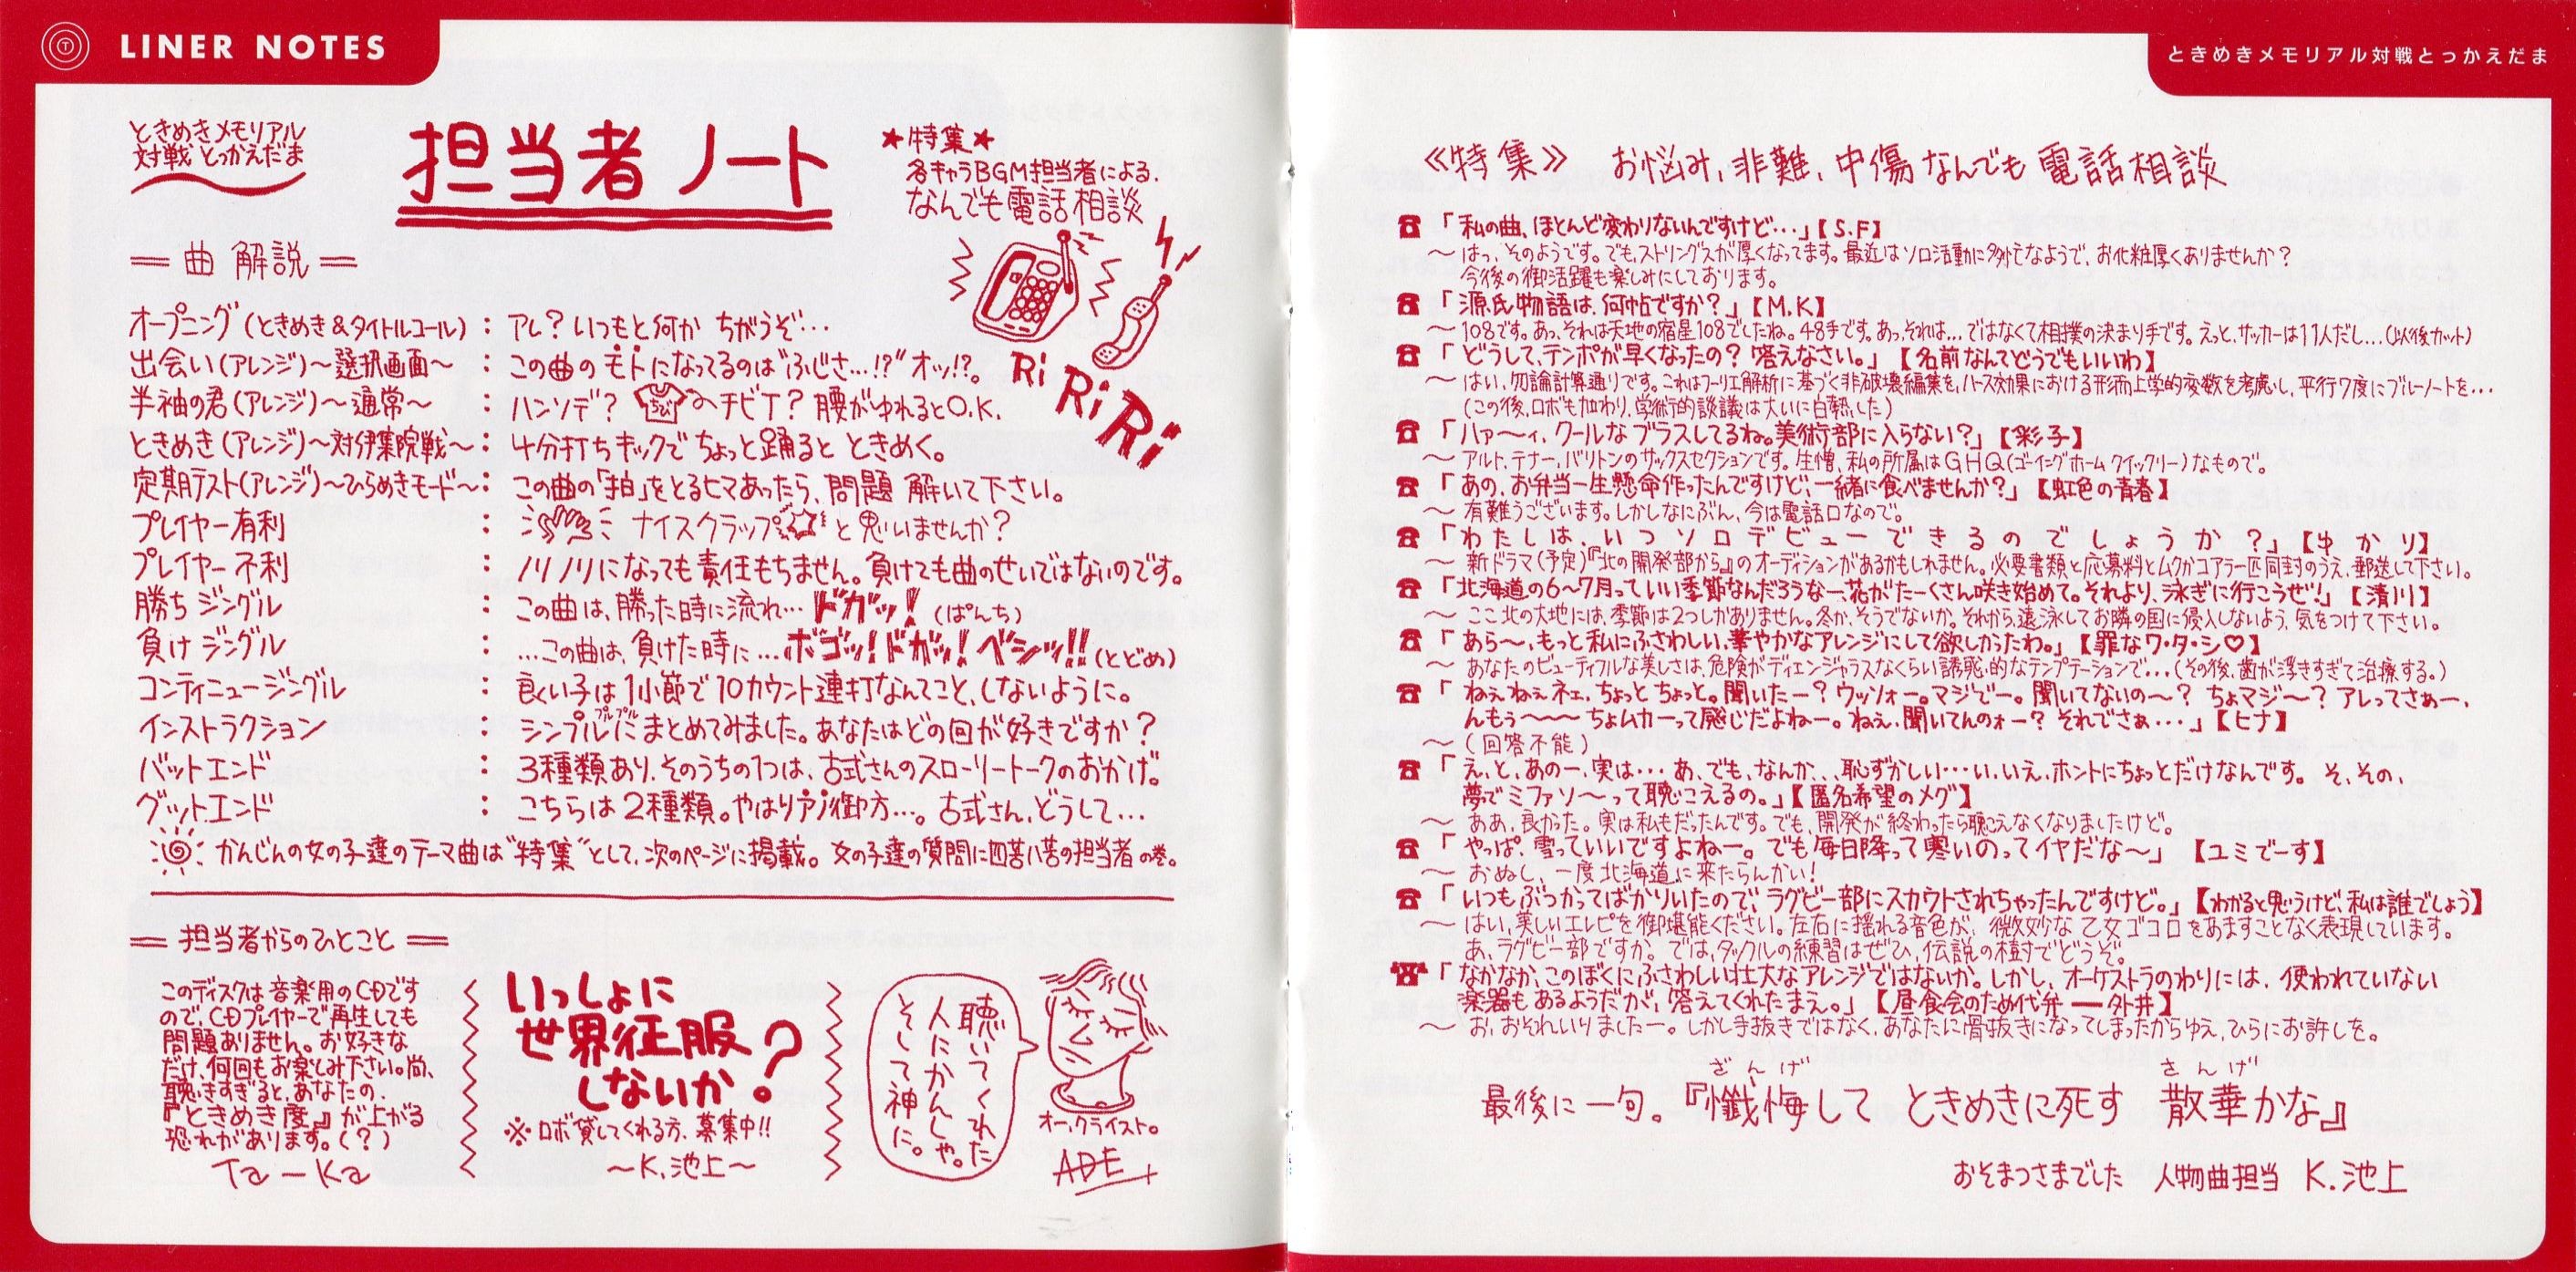 LINER NOTES
ときめきメモリアル
対戦とっかえだま
担当者ノート
★特集★
各キャラBGM担当者による、
なんでも電話相談
Ri Ri Ri
＝ 曲 解説 ＝
オープニング(ときめき&タイトルコール) : アレ?いつもと何か ちがうぞ…
出会い(アレンジ)〜選択画面〜 : この曲のモトになってるのは"ふじさ…!?"オッ!?。
半袖の君(アレンジ)〜通常〜 : ハンソデ? ちび へチビT? 腰がゆれるとO.K.
ときめき(アレンジ)〜対伊集院戦〜 : 4分打ちキックでちょっと踊ると ときめく。
定期テスト(アレンジ)〜ひらめきモード〜 : この曲の「拍」をとるヒマあったら、問題 解いて下さい。
プレイヤー有利 : ナイスクラップ と思いませんか?
プレイヤー不利 : ノリノリになっても責任もちません。負けても曲のせいではないのです。
勝ちジングル : この曲は、勝った時に流れ… ドガッ! (ぱんち)
負けジングル : …この曲は、負けた時に…ボゴッ!ドガッ!ベシッ!!(とどめ)
コンティニュージングル : 良い子は1小節で10カウント連打なんてこと、しないように。
インストラクション : シンプルにまとめてみました。あなたはどの回が好きですか?
プルプル
バットエンド : 3種類あり、そのうちの1つは、古式さんのスローリートークのおかげ。
グットエンド : こちらは2種類。やはりアノ御方…。古式さん、どうして…
かんじんの女の子達のテーマ曲は"特集"として、次のページに掲載。女の子達の質問に四苦八苦の担当者の巻。
＝ 担当者からのひとこと ＝
このディスクは音楽用のCDです
ので、CDプレイヤーで再生しても
問題ありません。お好きな
だけ、何回もお楽しみ下さい。尚、
聴きすぎると、あなたの、
『ときめき度』が上がる
恐れがあります。(?)
Ta-Ka
いっしょに
世界征服
しないか?
※ロボ貸してくれる方、募集中!!
〜K.池上〜
聴いてくれた
人にかんしゃ。
そして神に。
オー、クライスト。
ADE
ときめきメモリアル対戦とっかえだま
≪特集≫ お悩み、非難、中傷なんでも電話相談
☎「私の曲、ほとんど変わりないんですけど…」【S.F】
〜はっ、そのようです。でも、ストリングスが厚くなってます。最近はソロ活動に多忙なようで、お化粧厚くありませんか?
今後の御活躍も楽しみにしております。
☎「源氏物語は、何帖ですか?」【M.K】
〜108です。あっ、それは天地の宿星108でしたね。48手です。あっ、それは…ではなくて相撲の決まり手です。えっと、サッカーは11人だし…(以後カット)
☎「どうして、テンポが早くなったの?答えなさい。」【名前なんてどうでもいいわ】
〜はい、勿論計算通りです。これはフーリエ解析に基づく非破壊編集を、ハース効果における形而上学的変数を考慮し、平行7度にブルーノートを…
(この後、ロボも加わり、学術的談議は大いに白熱した)
☎「ハァ〜ィ、クールなブラスしてるね。美術部に入らない?」【彩子】
〜アルト、テナー、バリトンのサックスセクションです。生憎、私の所属はGHQ(ゴーイングホームクイックリー)なもので。
☎「あの、お弁当一生懸命作ったんですけど、一緒に食べませんか?」【虹色の青春】
〜有難うございます。しかしなにぶん、今は電話口なので。
☎「わたしは、いつソロデビューできるのでしょうか?」【ゆかり】
〜新ドラマ(予定)『北の開発部から』のオーディションがあるかもしれません。必要書類と応募料とムクかコアラ一匹同封のうえ、郵送して下さい。
☎「北海道の6〜7月っていい季節なんだろうなー、花がたーくさん咲き始めて。それより、泳ぎに行こうぜ!」【清川】
〜ここ北の大地には、季節は2つしかありません。冬か、そうでないか。それから、遠泳してお隣の国に侵入しないよう、気をつけて下さい。
☎「あら〜、もっと私にふさわしい、華やかなアレンジにして欲しかったわ。」【罪なワ・タ・シ♡】
〜あなたのビューティフルな美しさは、危険がディエンジャラスなくらい誘惑的なテンプテーションで…(その後、歯が浮きすぎて治療する。)
☎「ねえねえネェ、ちょっとちょっと。聞いたー?ウッソォー。マジでー。聞いてないの〜?ちょマジ〜?アレってさぁー、
んもぅ〜〜〜ちょムカーって感じだよねー。ねぇ、聞いてんのォー?それでさぁ…」【ヒナ】
〜(回答不能)
☎「え、と、あのー、実は…あ、でも、なんか、、、恥ずかしい…い、いえ、ホントにちょっとだけなんです。そ、その、
夢でミファソ〜って聴こえるの。」【匿名希望のメグ】
〜ああ、良かった。実は私もだったんです。でも、開発が終わったら聴こえなくなりましたけど。
☎「やっぱ、雪っていいですよねー。でも毎日降って寒いのってイヤだな〜」【ユミでーす】
〜おぬし、一度北海道に来たらんかい!
☎「いつもぶつかってばかりいたので、ラグビー部にスカウトされちゃったんですけど。」【わかると思うけど、私は誰でしょう】
〜はい、美しいエレピを御堪能ください。左右に揺れる音色が、微妙な乙女ゴコロをあますことなく表現しています。
あ、ラグビー部ですか。では、タックルの練習はぜひ、伝説の樹でどうぞ。
☎「なかなか、このぼくにふさわしい壮大なアレンジではないか。しかし、オーケストラのわりには、使われていない
楽器もあるようだが、答えてくれたまえ。」【昼食会のため代弁──外井】
〜お、おそれいりましたー。しかし手抜きではなく、あなたに骨抜きになってしまったからゆえ、ひらにお許しを。
ざんげ さんげ
最後に一句。『懺悔して ときめきに死す 散華かな』
おそまつさまでした 人物曲担当 K.池上